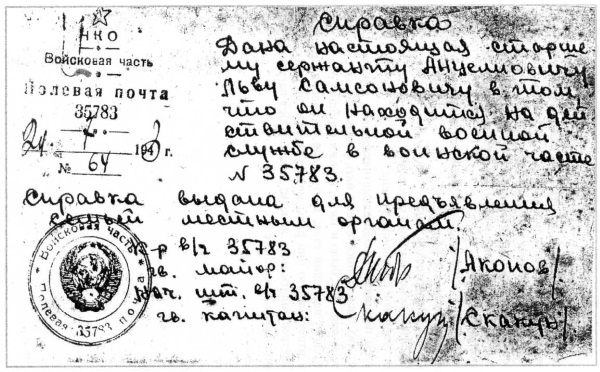 НКО
Войсковая часть
Полевая почта
35783
194 г.
№ 64
Справка
Дана настоящая старше-
му сержанту Анцелиовичу
Льву Самсоновичу в том,
что он находится на дей
ствительной военной
службе в воинской части
N 35783.
Справка выдана для предъявления
семьей местным органам.
к-р в/ч 35783
гв. майор: /Яконов/
Нач. шт. в/ч 35783
гв. капитан:
Войсковая часть
Полевая почта
35783